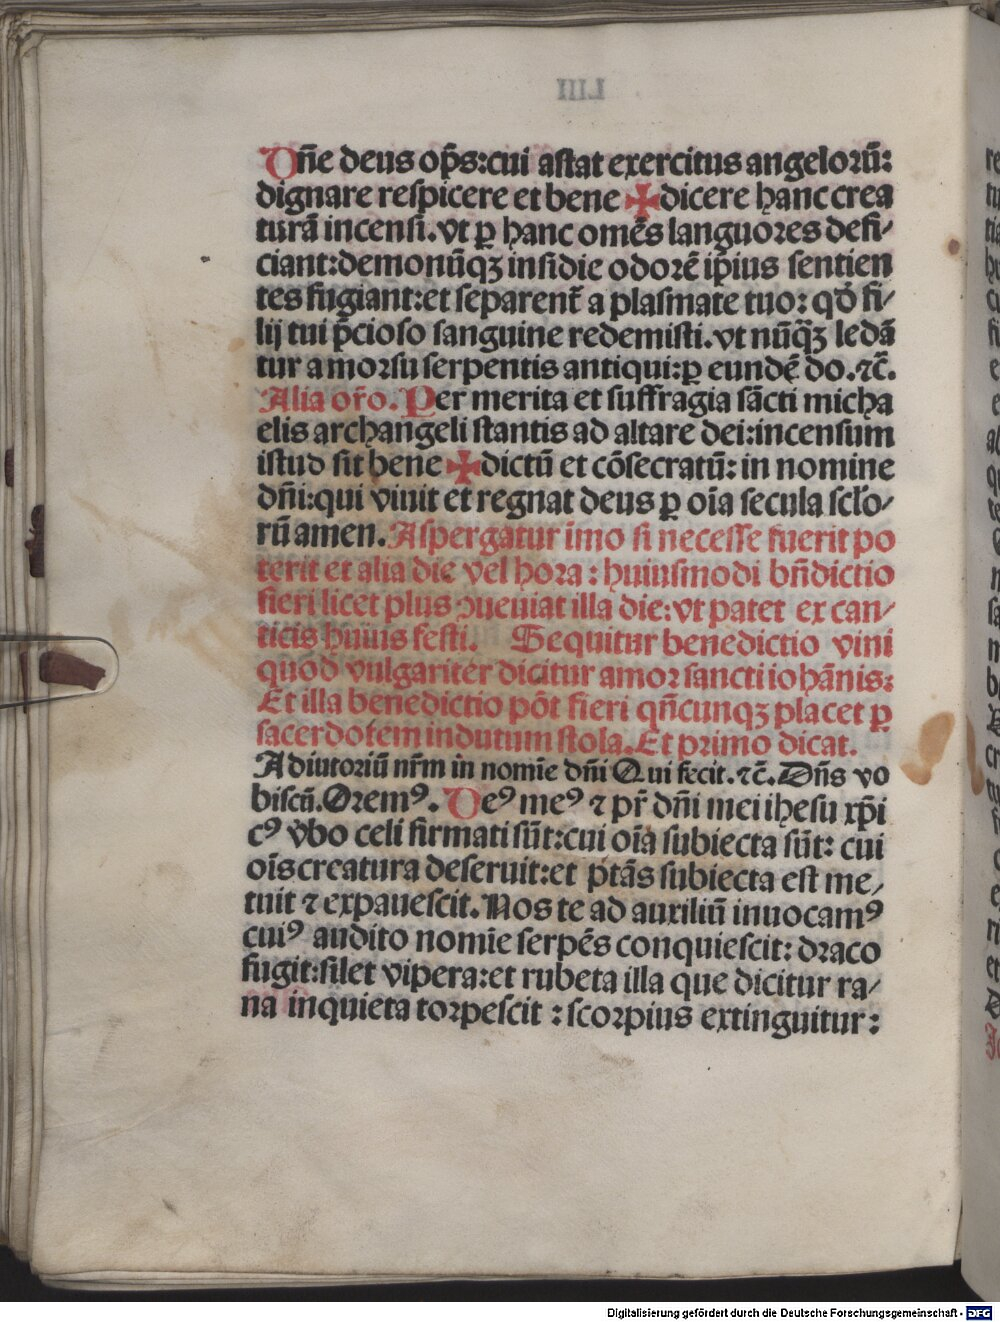 LIII
Dn̄e deus op̄s:cui astat exercitus angeloꝝū:
dignare respicere et bene ✠ dicere hanc crea
turā incensi.vt ꝑ hanc omēs languores defi/
ciant:demonūqꝫ insidie odorē ip̄ius sentien
tes fugiant:et separent̄ a plasmate tuo: qd̓ fi/
lij tui p̄cioso sanguine redemisti.vt nūq̄ꝫ ledā
tur a morsu serpentis antiqui:ꝑ eundē do.⁊c̄.
Alia or̄o. Per merita et suffragia sācti micha
elis archangeli stantis ad altare dei:incensum
istud sit bene ✠ dictū et cōsecratū: in nomine
dn̄i:qui viuit et regnat deus ꝑ oīa secula scl̓o-
rū amen. Aspergatur imo si necesse fuerit po
terit et alia die vel hora : huiusmodi bn̄dictio
fieri licet plus ꝯueniat illa die: vt patet ex can/
ticis huius festi. Sequitur benedictio vini
quod vulgariter dicitur amor sancti iohānis:
Et illa benedictio pōt fieri qn̄cunqꝫ placet ꝑ
sacerdotem indutum stola. Et primo dicat.
Adiutoriū nr̄m in nomīe dn̄i Qui fecit.⁊c̄. Dn̄s vo
biscū. Oremꝰ. Deꝰ meꝰ ⁊ pr̄ dn̄i mei ihesu xp̄i
cꝰ v̓bo celi firmati sūt:cui oīa subiecta sūt: cui
oīs creatura deseruit:et ptās subiecta est me/
tuit ⁊ expauescit. Nos te ad auxiliū inuocamꝰ
cuiꝰ audito nomīe serpēs conquiescit: draco
fugit:silet vipera:et rubeta illa que dicitur ra/
na inquieta torpescit : scorpius extinguitur :
Digitalisierung gefördert durch die Deutsche Forschungsgemeinschaft - DFG